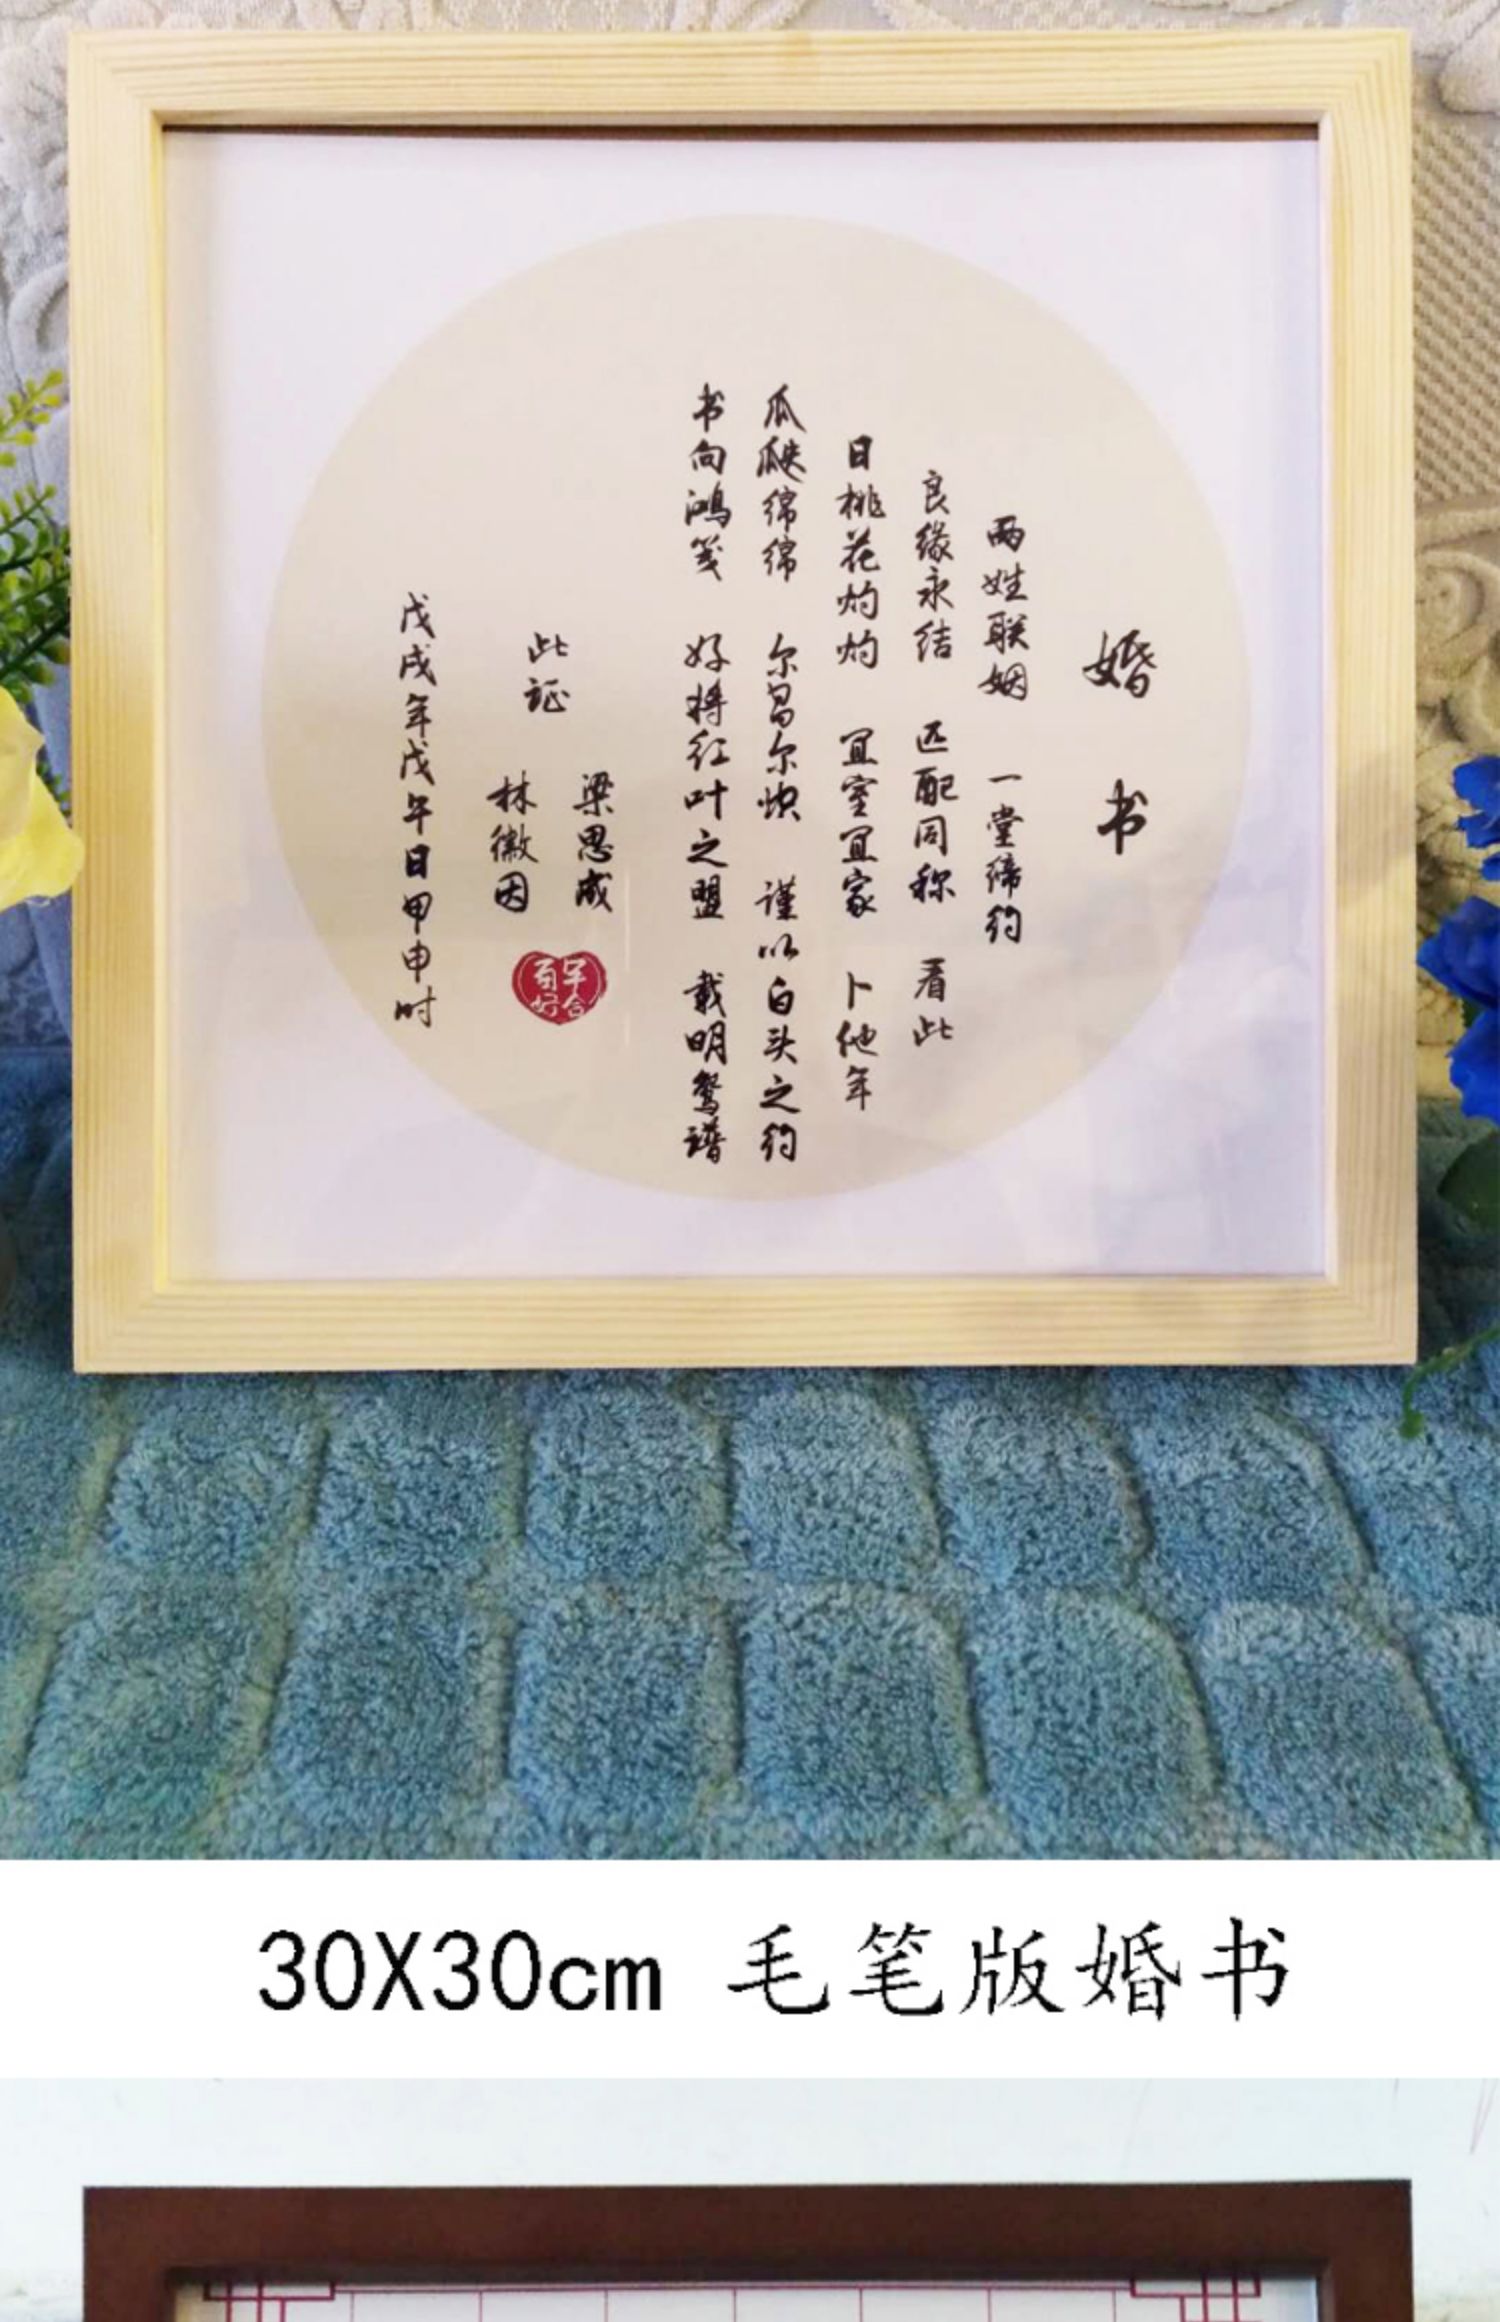 婚 书
两姓联姻 一堂缔约
良缘永结 匹配同称 看此
日桃花灼灼 宜室宜家 卜他年
瓜瓞绵绵 尔昌尔炽 谨以白头之约
书向鸿笺 好将红叶之盟 载明鸳谱
此证
梁思成
林徽因
百年
好合
戊戌年戊午日甲申时
30X30cm 毛笔版婚书